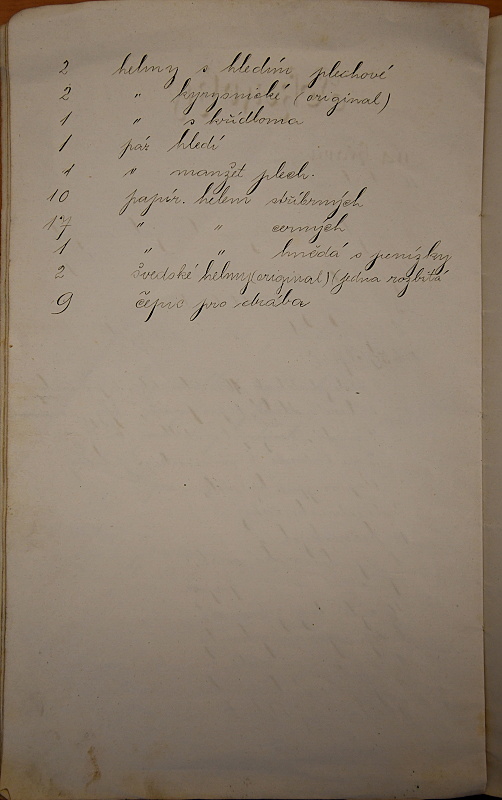 2 helmy s hledím plechové
2 " kyrysnické (original)
1 " s křídloma
1 pár hledí
1 " manžet plech.
10 papír. helem stříbrných
17 " " cerných
1 " " hnědá s penízky
2 švedské helmy (original) (jedna rozbitá
9 čepic pro drába